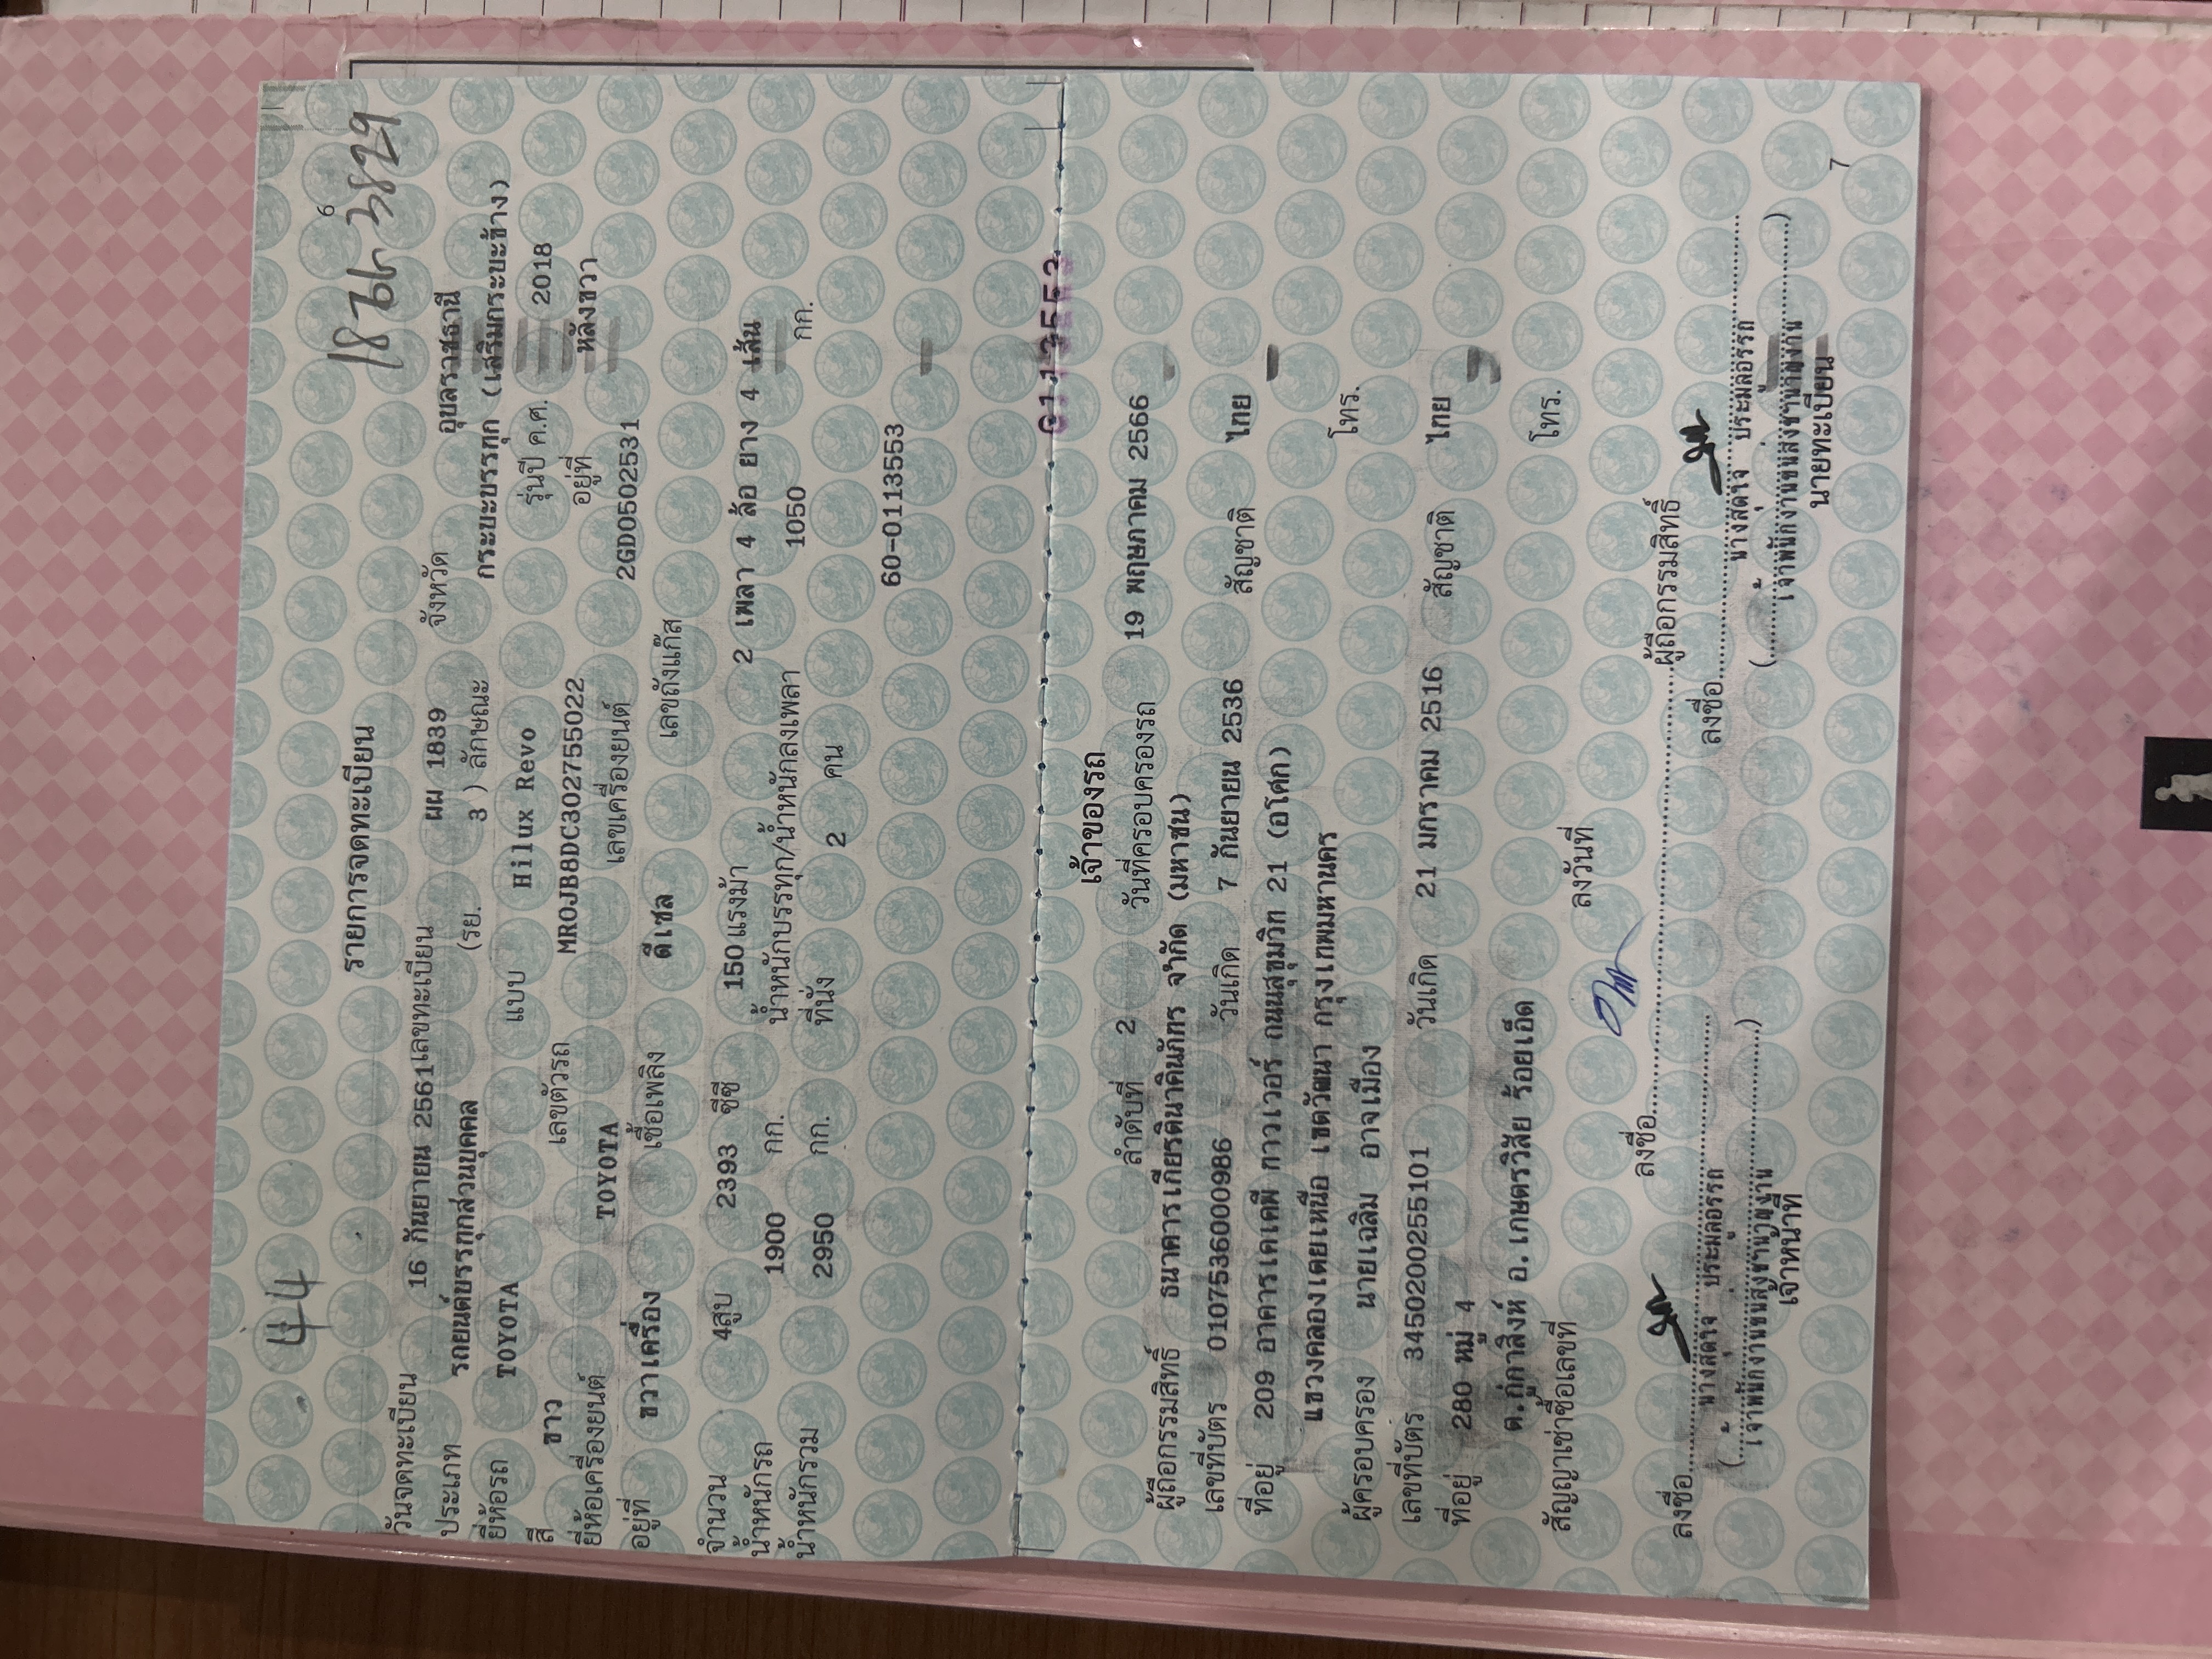 44
6
รายการจดทะเบียน
วันจดทะเบียน 16 กันยายน 2561 เลขทะเบียน ผผ 1839 จังหวัด อุบลราชธานี
ประเภท รถยนต์บรรทุกส่วนบุคคล (รย. 3 ) ลักษณะ กระบะบรรทุก (เสริมกระบะข้าง)
ยี่ห้อรถ TOYOTA แบบ Hilux Revo รุ่นปี ค.ศ. 2018
สี ขาว เลขตัวรถ MR0JB8DC302755022 อยู่ที่ หลังขวา
ยี่ห้อเครื่องยนต์ TOYOTA เลขเครื่องยนต์ 2GD0502531
อยู่ที่ ขวาเครื่อง เชื้อเพลิง ดีเซล เลขถังแก๊ส
จำนวน 4สูบ 2393 ซีซี 150แรงม้า 2 เพลา 4 ล้อ ยาง 4 เส้น
น้ำหนักรถ 1900 กก. น้ำหนักบรรทุก/น้ำหนักลงเพลา 1050 กก.
น้ำหนักรวม 2950 กก. ที่นั่ง 2 คน
60-0113553
0113553
เจ้าของรถ
ลำดับที่ 2 วันที่ครอบครองรถ 19 พฤษภาคม 2566
ผู้ถือกรรมสิทธิ์ ธนาคารเกียรตินาคินภัทร จำกัด (มหาชน)
เลขที่บัตร 0107536000986 วันเกิด 7 กันยายน 2536 สัญชาติ ไทย
ที่อยู่ 209 อาคารเคเคพี ทาวเวอร์ ถนนสุขุมวิท 21 (อโศก)
แขวงคลองเตยเหนือ เขตวัฒนา กรุงเทพมหานคร โทร.
ผู้ครอบครอง นายเฉลิม อาจเมือง
เลขที่บัตร 3450200255101 วันเกิด 21 มกราคม 2516 สัญชาติ ไทย
ที่อยู่ 280 หมู่ 4
ต.กู่กาสิงห์ อ.เกษตรวิสัย ร้อยเอ็ด โทร.
สัญญาเช่าซื้อเลขที่ ลงวันที่
ลงชื่อ ผู้ถือกรรมสิทธิ์
ลงชื่อ ลงชื่อ
(นางสุดใจ ประมูลอรรถ) (นางสุดใจ ประมูลอรรถ)
เจ้าพนักงานขนส่งชำนาญงาน เจ้าพนักงานขนส่งชำนาญงาน
เจ้าหน้าที่ นายทะเบียน
7